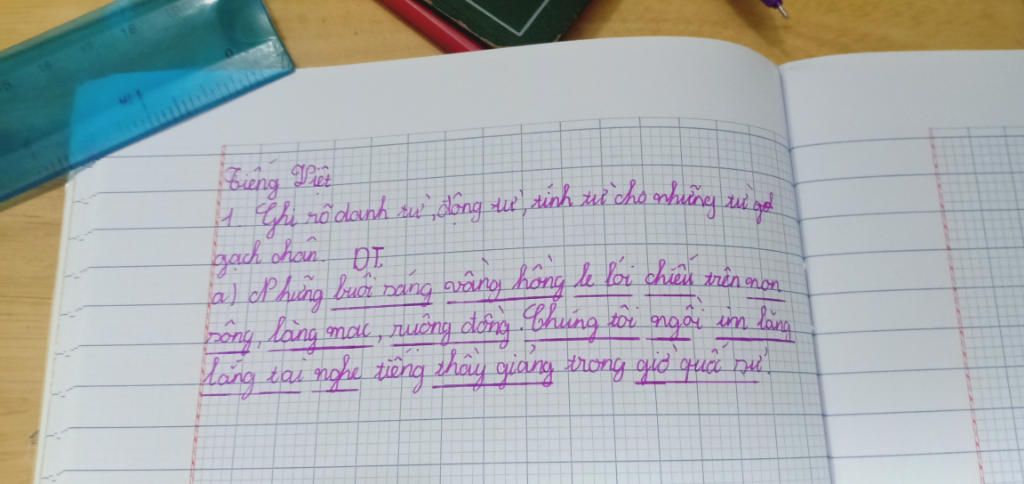 Tiếng Việt
1. Ghi rõ danh từ, động từ, tính từ cho những từ gạ
gạch chân. DT
a) Những buổi sáng vầng hồng le lói chiếu trên non
sông, làng mạc, ruộng đồng. Chúng tôi ngồi im lặng
lắng tai nghe tiếng thầy giảng trong giờ quốc sử.